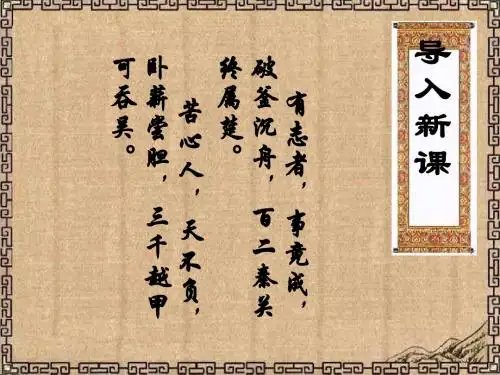 导入新课
有志者，事竟成，
破釜沉舟，百二秦关
终属楚。
苦心人，天不负，
卧薪尝胆，三千越甲
可吞吴。